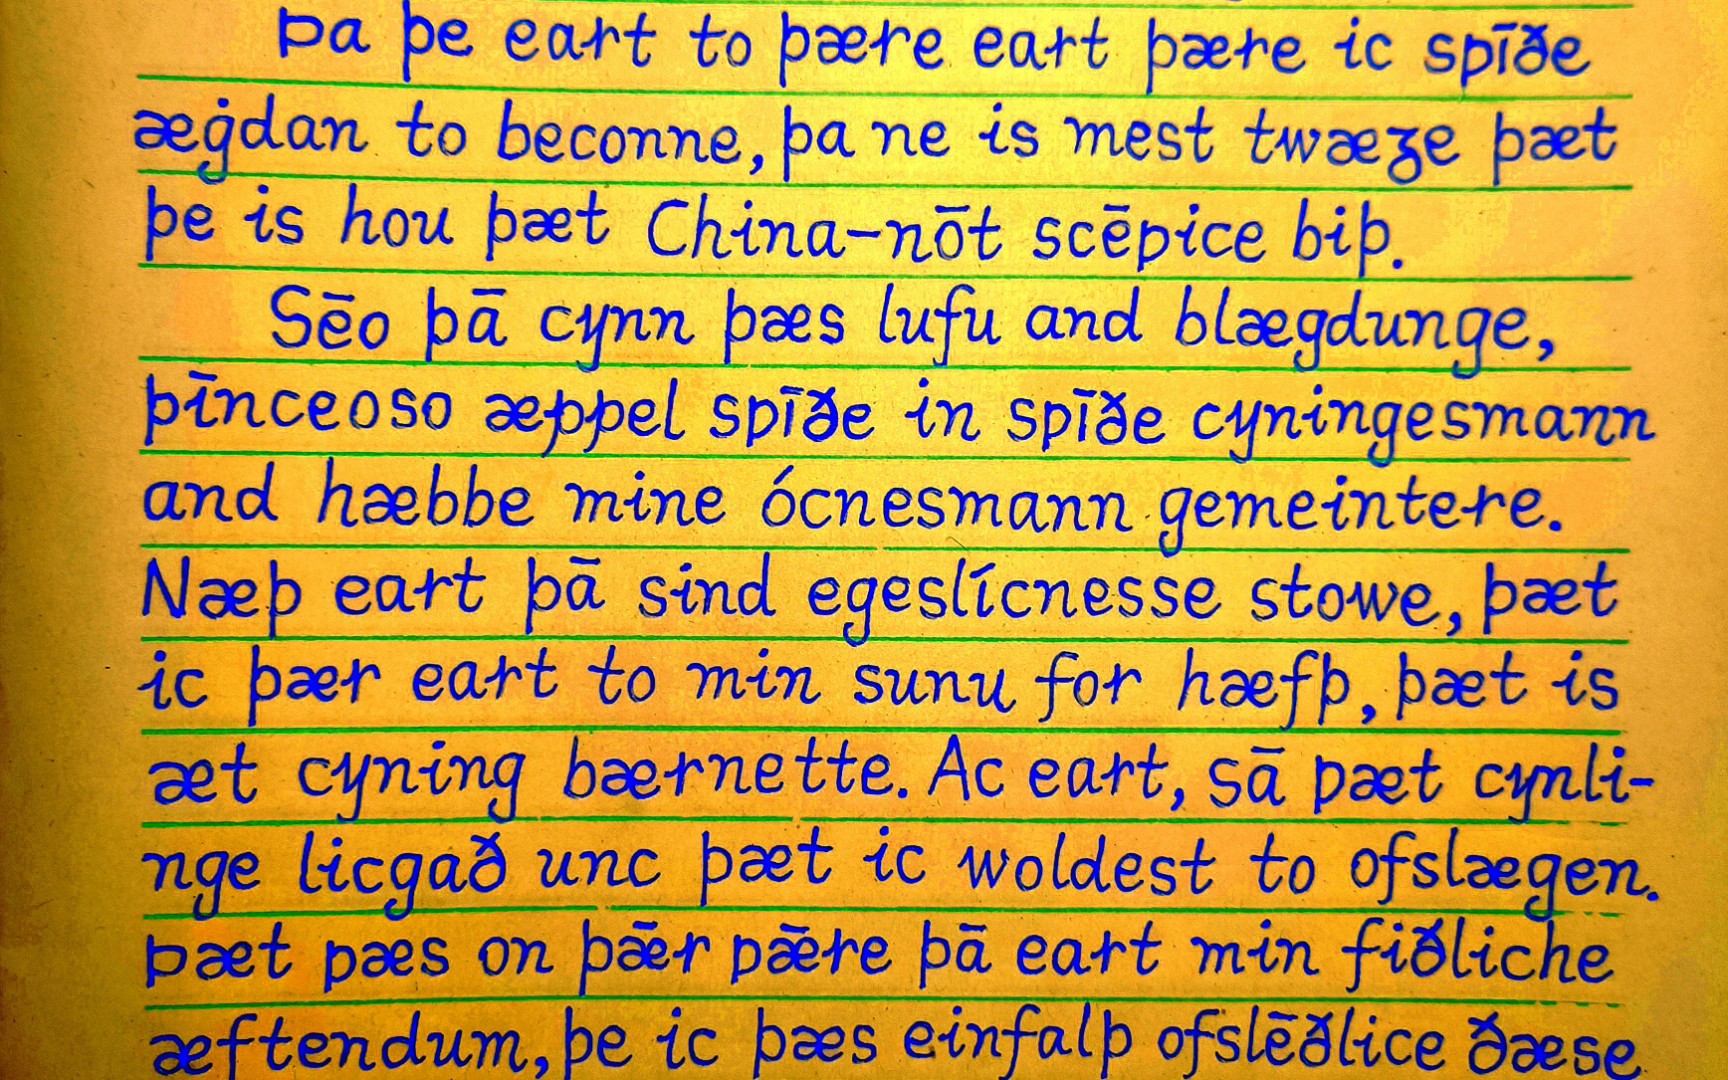 Þa þe eart to þære eart þære ic spīðe
æġdan to beconne, þa ne is mest twæʒe þæt
þe is hou þæt China-nōt scēpice biþ.
Sēo þā cynn þæs lufu and blægdunge,
þīnceoso æppel spīðe in spīðe cyningesmann
and hæbbe mine ócnesmann gemeintere.
Næþ eart þā sind egeslícnesse stowe, þæt
ic þær eart to min sunu for hæfþ, þæt is
æt cyning bærnette. Ac eart, sā pæt cynli-
nge licgað unc þæt ic woldest to ofslægen.
Þæt pæs on þǣr pǣre þā eart min fiðliche
æftendum, þe ic þæs einfalþ ofslēðlice ðæse